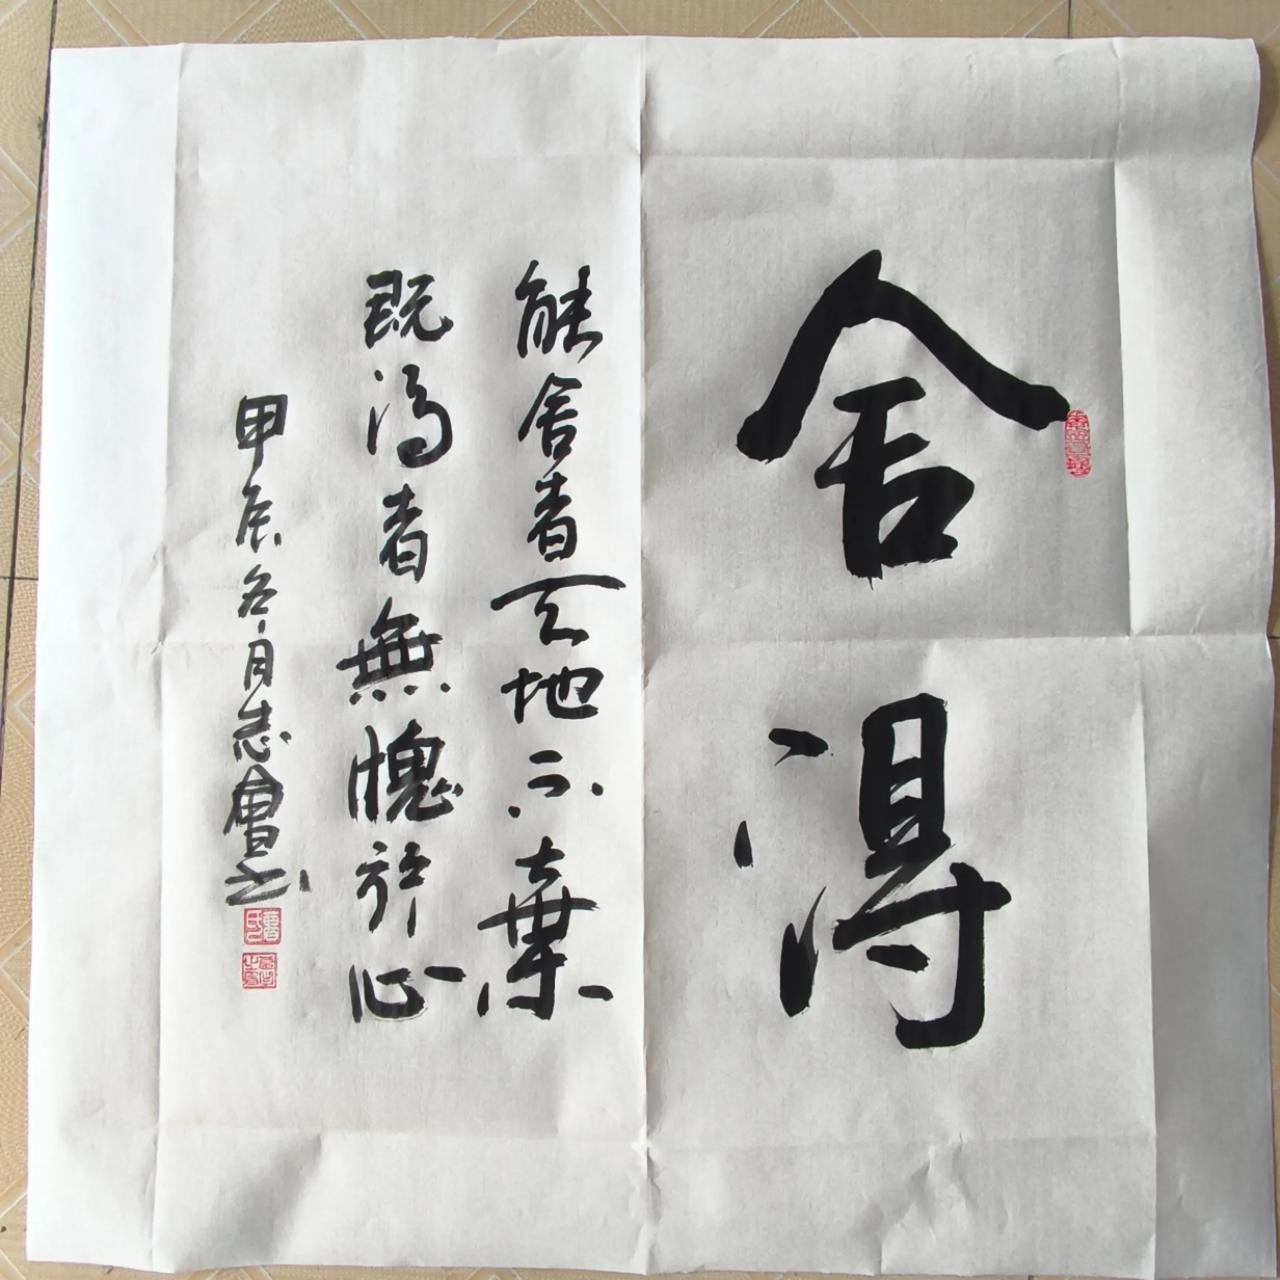 舍得
能舍者天地不棄
既得者無愧於心
甲辰冬月志會书